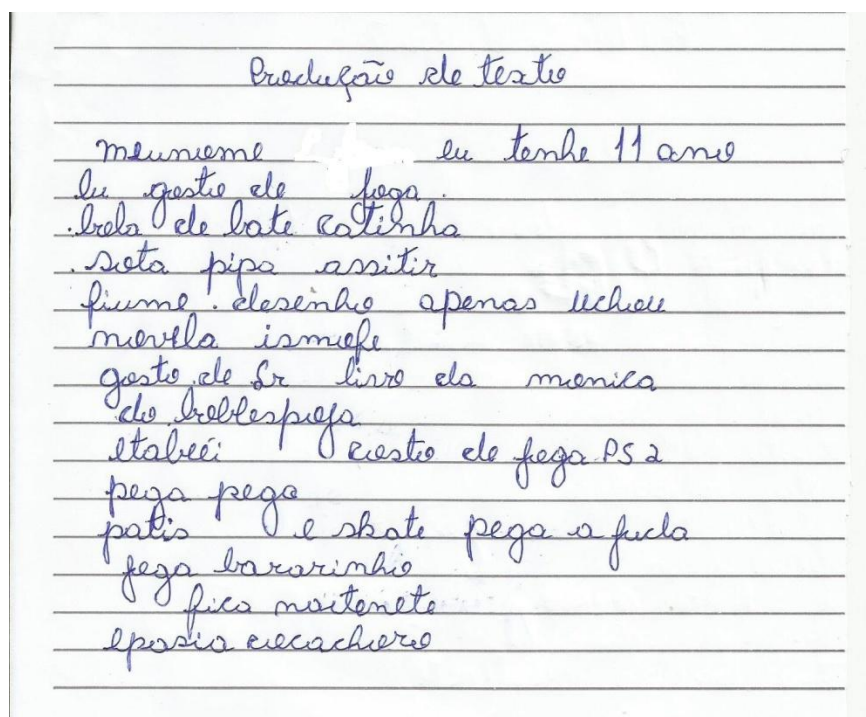 Produção de texto
meunome eu tenho 11 ano
Eu gosto de joga.
.bola de bate catinha
.sota pipa assitir
fiume. desenho apenas uchou
novela ismofe
gosto de Lr livro da monica
do boblespoja
etabeéi costo de joga PS2
pega pega
patis e skate pega a fucla
joga bararinho
fica noitenete
epasia cocachoro